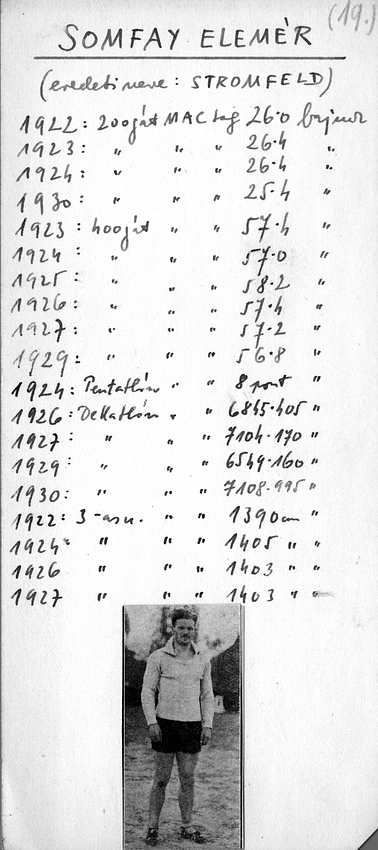 (19.)
SOMFAY ELEMÉR
(eredeti neve: STROMFELD)
1922: 200gát MAC tag 26·0 bajnok
1923: " " " 26·4 "
1924: " " " 26·4 "
1930: " " " 25·4 "
1923: 400gát " " 57·4 "
1924: " " " 57·0 "
1925: " " " 58·2 "
1926: " " " 57·4 "
1927: " " " 57·2 "
1929: " " " 56·8 "
1924: Pentatlón " " 8 pont "
1926: Dekatlón " " 6845·405 "
1927: " " " 7104·170 "
1929: " " " 6549·160 "
1930: " " " 7108·995 "
1922: 3-asu. " " 1390cm "
1924: " " " 1405 " "
1926 " " " 1403 " "
1927 " " " 1403 " "